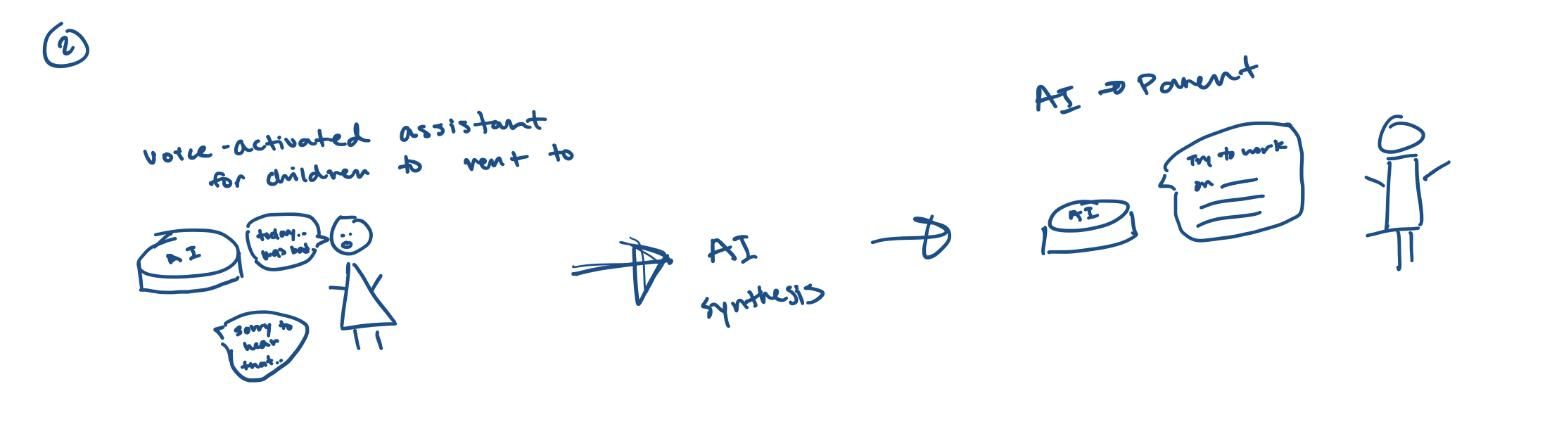 2
voice-activated assistant
for children to vent to
AI
today..
was bad.
sorry to
hear
that..
AI
synthesis
AI → Parent
AI
Try to work
on